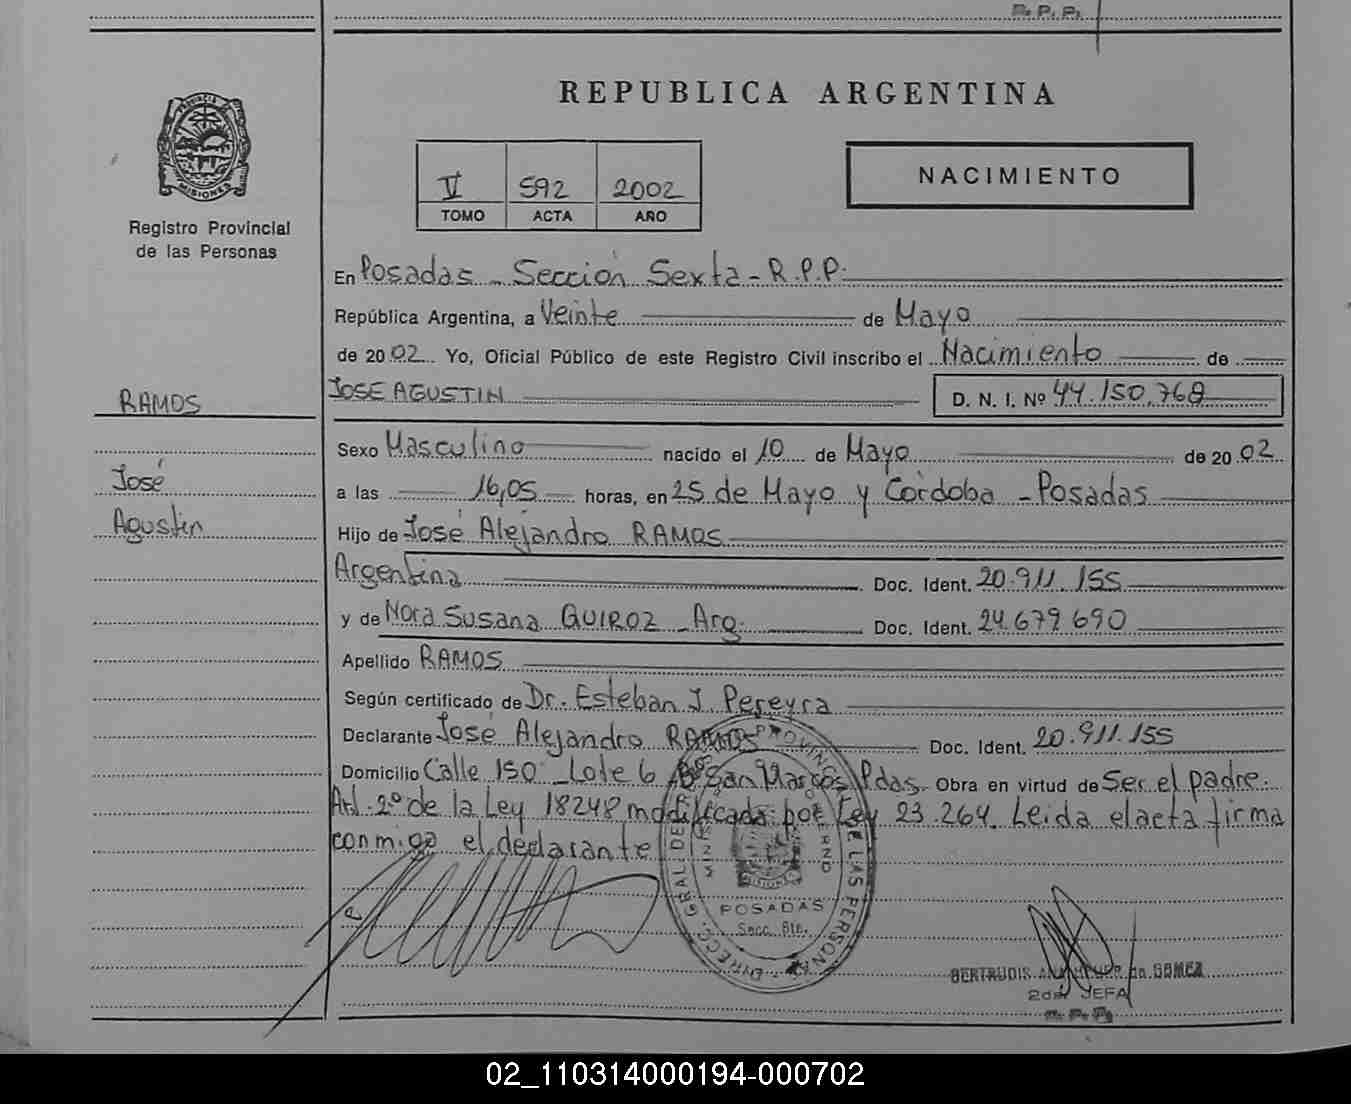 R. P. P.
REPUBLICA ARGENTINA
PROVINCIA DE MISIONES
Registro Provincial
de las Personas
V 592 2002
TOMO ACTA AÑO
NACIMIENTO
En Posadas - Sección Sexta - R.P.P.
República Argentina, a Veinte de Mayo
de 2002 Yo, Oficial Público de este Registro Civil inscribo el Nacimiento de
JOSE AGUSTIN D. N. I. Nº 44.150.768
RAMOS
José
Agustin
Sexo Masculino nacido el 10 de Mayo de 2002
a las 16,05 horas, en 25 de Mayo y Córdoba - Posadas
Hijo de José Alejandro RAMOS
Argentina Doc. Ident. 20.911.155
y de Nora Susana QUIROZ - Arg. Doc. Ident. 24.679.690
Apellido RAMOS
Según certificado de Dr. Esteban J. Pereyra
Declarante José Alejandro RAMOS Doc. Ident. 20.911.155
Domicilio Calle 150 - Lote 6 Bº San Marcos Pdas. Obra en virtud de Ser el padre.
Art. 2º de la Ley 18248 modificada por Ley 23.264. Leida el acta firma
conmigo el declarante
DIREC. GRAL. DE PROVINCIAL DE LAS PERSONAS
POSADAS
Secc. 6ta.
MISIONES
GERTRUDIS de GOMEZ
2da. JEFA
R. P. P.
02_110314000194-000702